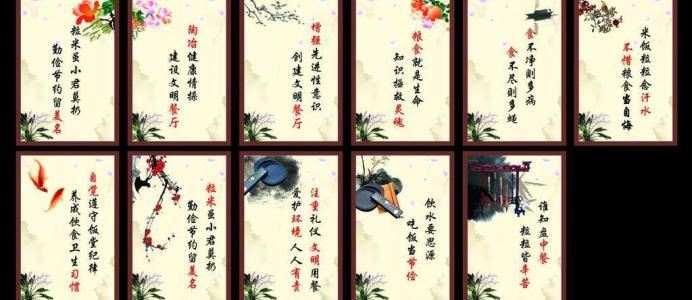 粒米虽小君莫扔
勤俭节约留美名
陶冶健康情操
建设文明餐厅
增强先进性意识
创建文明餐厅
粮食就是生命
知识拯救灵魂
食不净则多病
食不尽则多蝇
米饭粒粒念汗水
不惜粮食当自悔
自觉遵守饭堂纪律
养成饮食卫生习惯
粒米虽小君莫扔
勤俭节约留美名
注重礼仪 文明用餐
爱护环境 人人有责
饮水要思源
吃饭当节俭
谁知盘中餐
粒粒皆辛苦